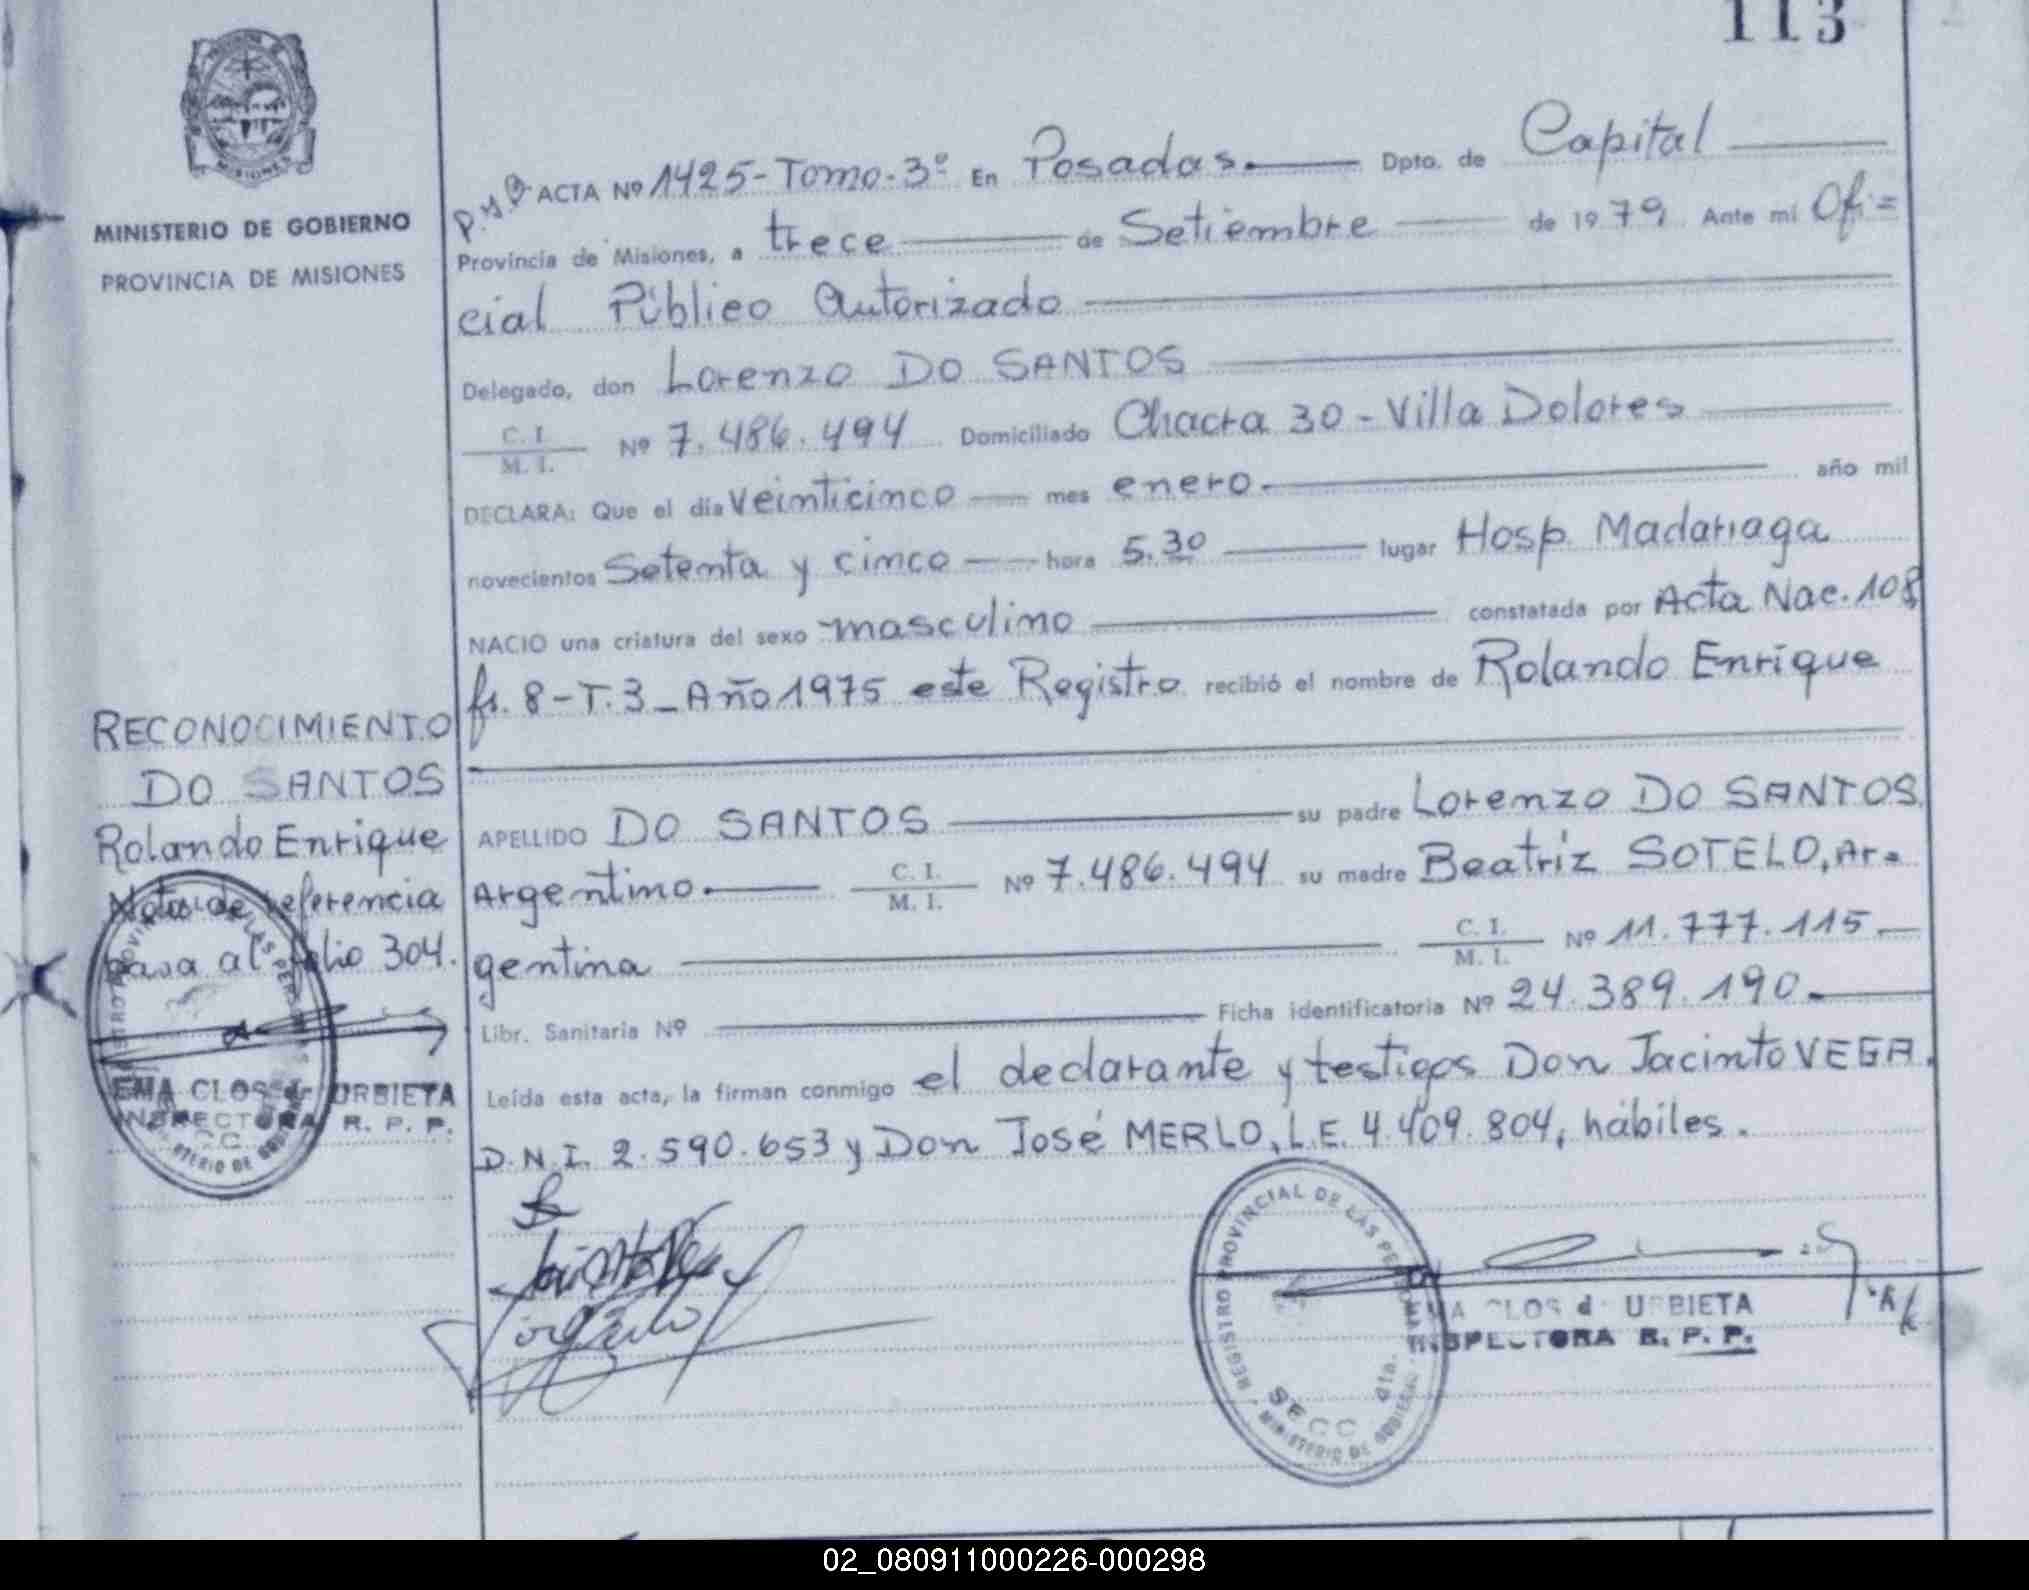 113
MINISTERIO DE GOBIERNO
PROVINCIA DE MISIONES
MISIONES
ACTA Nº 1425-Tomo-3º En Posadas. Dpto. de Capital
Provincia de Misiones, a trece de Setiembre de 1979 Ante mi Ofi=
cial Público Autorizado
Delegado, don Lorenzo DO SANTOS
C. I. / M. I. Nº 7.486.494 Domiciliado Chacra 30 - Villa Dolores
DECLARA: Que el día veinticinco mes enero. año mil
novecientos Setenta y cinco hora 5.30 lugar Hosp. Madariaga
NACIO una criatura del sexo masculino constatada por Acta Nac. 108
fs. 8 - T. 3 - Año 1975 este Registro recibió el nombre de Rolando Enrique
APELLIDO DO SANTOS su padre Lorenzo DO SANTOS.
Argentino. C. I. / M. I. Nº 7.486.494 su madre Beatriz SOTELO, Ar=
gentina C. I. / M. I. Nº 11.777.115
Libr. Sanitaria Nº Ficha identificatoria Nº 24.389.190.
Leída esta acta, la firman conmigo el declarante y testigos Don Jacinto VEGA.
D.N.I. 2.590.653 y Don José MERLO, L.E. 4.409.804, hábiles.
RECONOCIMIENTO
DO SANTOS
Rolando Enrique
Nota de referencia
pasa al folio 304.
EMA CLOS de URBIETA
INSPECTORA R. P. P.
REGISTRO PROVINCIAL DE LAS PERSONAS
SECC 4ta.
MINISTERIO DE GOBIERNO
EMA CLOS de URBIETA
INSPECTORA R. P. P.
02_080911000226-000298